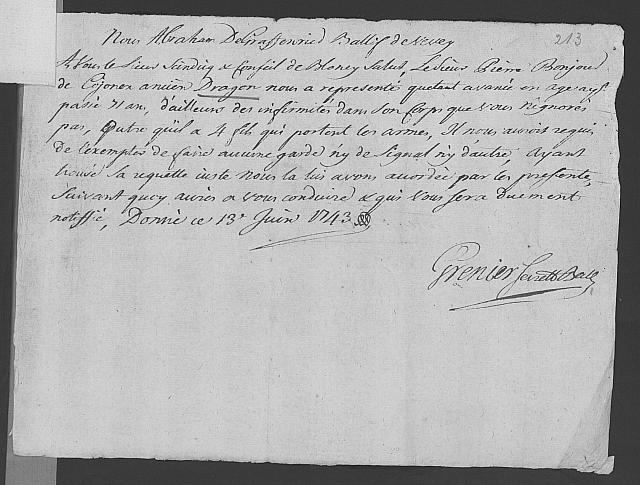 213
Nous Abraham DeGraffenried Ballif de Vevey
A Vous le Sieus Sindiq & Conseil de Bloney Salut, Le Sieus Pierre Bonjour
de Cojonex ancien Dragon nous a representé quetant avancé en age ayt
passé 71 ans, d'ailleurs des infirmités dans son Corps que vous n'ignorés
pas, Outre qu'il a 4 fils qui portent les armes, Il nous auroit requis
de l'exempter de faire aucune garde n'y de Signal n'y d'autre, Ayant
trouvé sa requette iuste Nous la lui avons accordée par les presentes,
Suivant quoy aurés a vous conduire & qui vous sera duement
notiffié, Donné ce 13e Juin 1743
Grenier Secret Ball